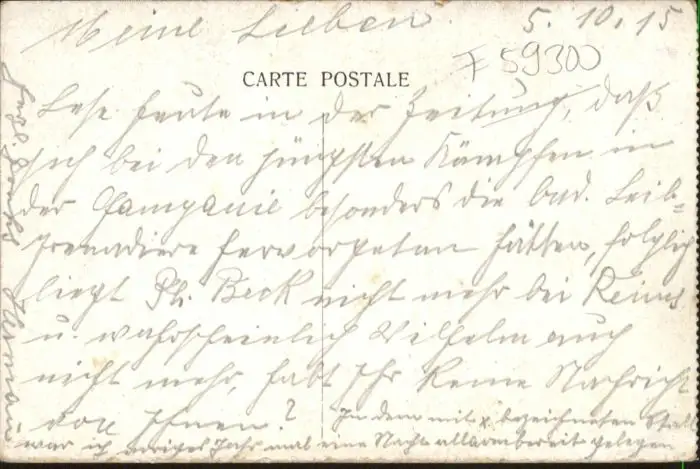 Meine Lieben. 5.10.15
F 59300
CARTE POSTALE
Lese heute in der Zeitung, daß
sich bei den jüngsten Kämpfen in
der Champagnie besonders die bad. Leib-
grenadiere hervorgetan hätten, folglich
liegt Ph. Beck nicht mehr bei Reims
u. wahrscheinlich Wilhelm auch
nicht mehr, habt Ihr keine Nachricht
von Ihnen? In dem mit x bezeichneten Stall
war ich voriges Jahr mal eine Nacht allarmbereit gelegen
Herzl. Gruß Herman